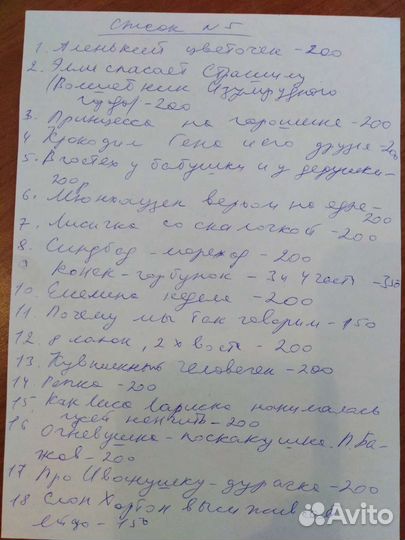 Список №5
1. Аленький цветочек -200
2. Элли спасает Страшилу
(Волшебник Изумрудного
города) -200
3. Принцесса на горошине -200
4 Крокодил Гена и его друзья -200
5. В гостях у бабушки и у дедушки -
200
6. Мюнхаузен верхом на ядре -
200
7. Лисичка со скалочкой -200
8. Синдбад - мореход - 200
9 Конек - горбунок - 3и 4 часть -350
10. Емелина неделя - 200
11. Почему мы так говорим - 150
12. 8 лапок, 2 хвоста - 200
13. Кувшинный человечек - 200
14 Репка - 200
15. Как лиса Лариска нанималась
гусей пасти -200
16 Огневушка - поскакушка. П. Ба-
жов - 200
17 Про Иванушку - дурачка -200
18 Слон Хортон высиживает
яйцо - 150
Avito